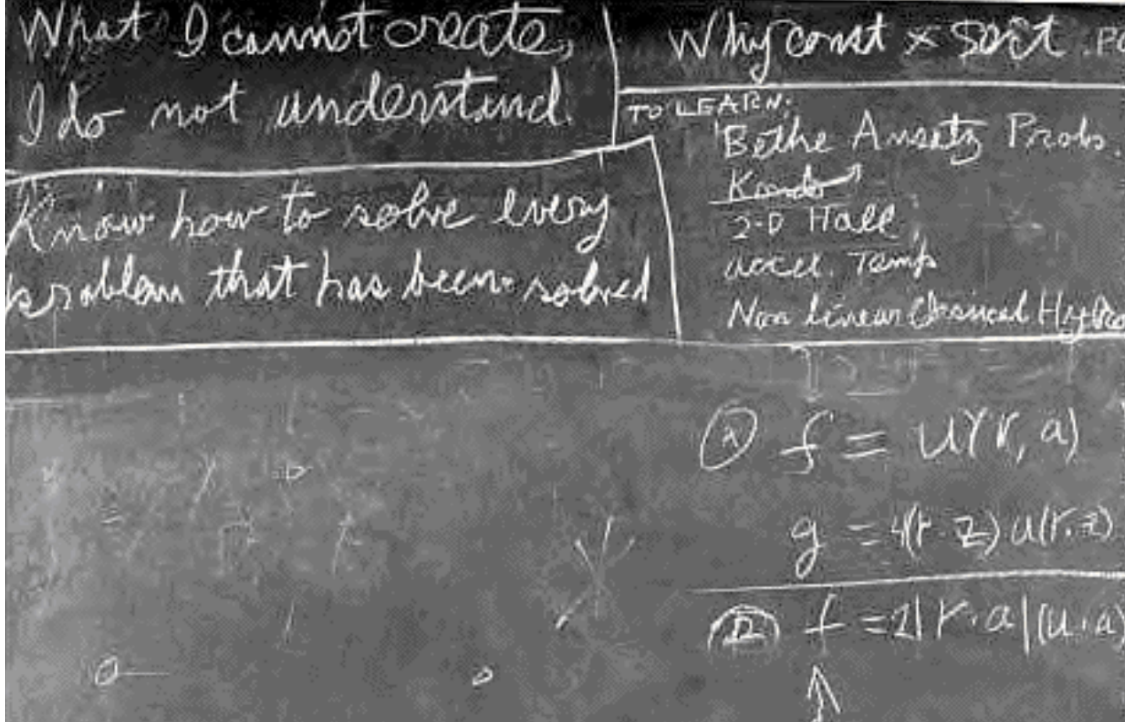 What I cannot create,
I do not understand.
Know how to solve every
problem that has been solved
Why const × sort . PO
TO LEARN:
Bethe Ansatz Probs.
Kondo
2-D Hall
accel. Temp
Non linear Classical Hydro
f = u(r, a)
g = 4(r·z) u(r.z)
f = 2|r·a|(u·a)